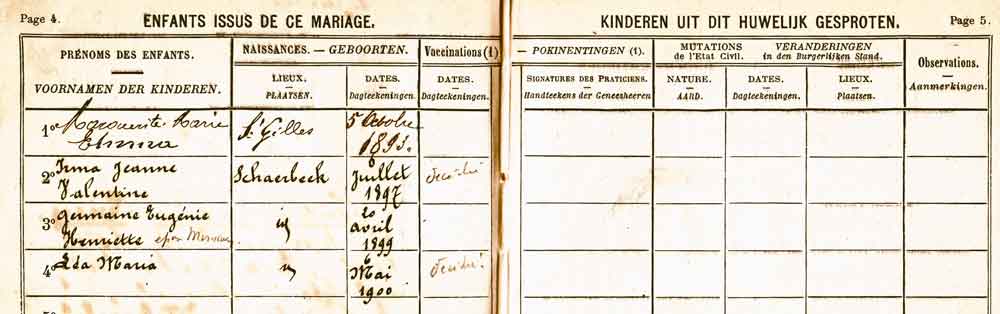 Page 4.
ENFANTS ISSUS DE CE MARIAGE.
PRÉNOMS DES ENFANTS.
VOORNAMEN DER KINDEREN.
NAISSANCES. — GEBOORTEN.
LIEUX.
PLAATSEN.
DATES.
Dagteekeningen.
Vaccinations (1)
DATES.
Dagteekeningen.
1° Marguerite Marie
St Gilles
5 Octobre
1893.
2° Irma Jeanne
Valentine
Schaerbeek
Juillet
1897
décédée
3° Germaine Eugénie
Henriette
id
20
avril
1899
4° Ida Maria
id
6
Mai
1900
décédée
KINDEREN UIT DIT HUWELIJK GESPROTEN.
Page 5.
— POKINENTINGEN (1).
SIGNATURES DES PRATICIENS.
Handteekens der Geneesheeren
MUTATIONS
de l'Etat Civil.
VERANDERINGEN
in den Burgerlijken Stand.
NATURE.
AARD.
DATES.
Dagteekeningen.
LIEUX.
Plaatsen.
Observations.
Aanmerkingen.